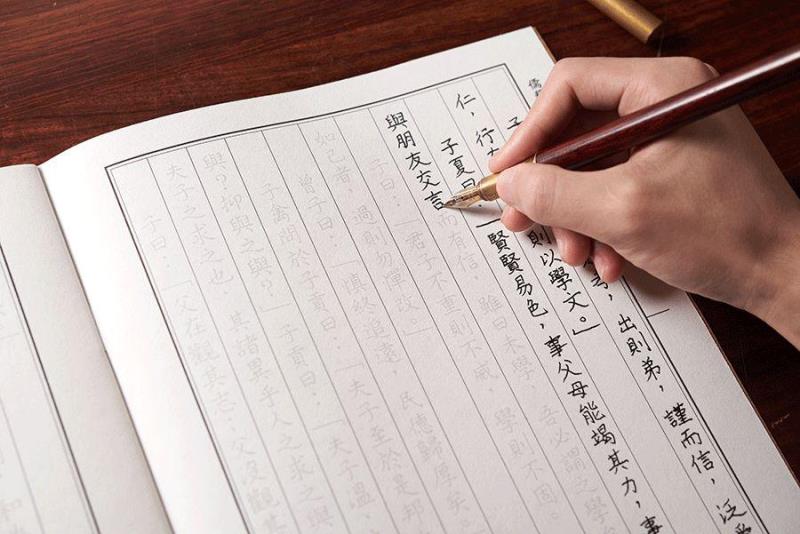 儒
子 孝，出則弟，謹而信，泛愛
仁，行 則以學文。」
子夏曰：「賢賢易色，事父母能竭其力，事
與朋友交言而有信，雖曰未學，吾必謂之學
子曰：「君子不重則不威，學則不固。
如己者，過則勿憚改。」
曾子曰：「慎終追遠，民德歸厚矣。
子禽問於子貢曰：「夫子至於是邦
與？抑與之與？」子貢曰：「夫子溫、
夫子之求之也，其諸異乎人之求之與
子曰：「父在觀其志，父沒觀其